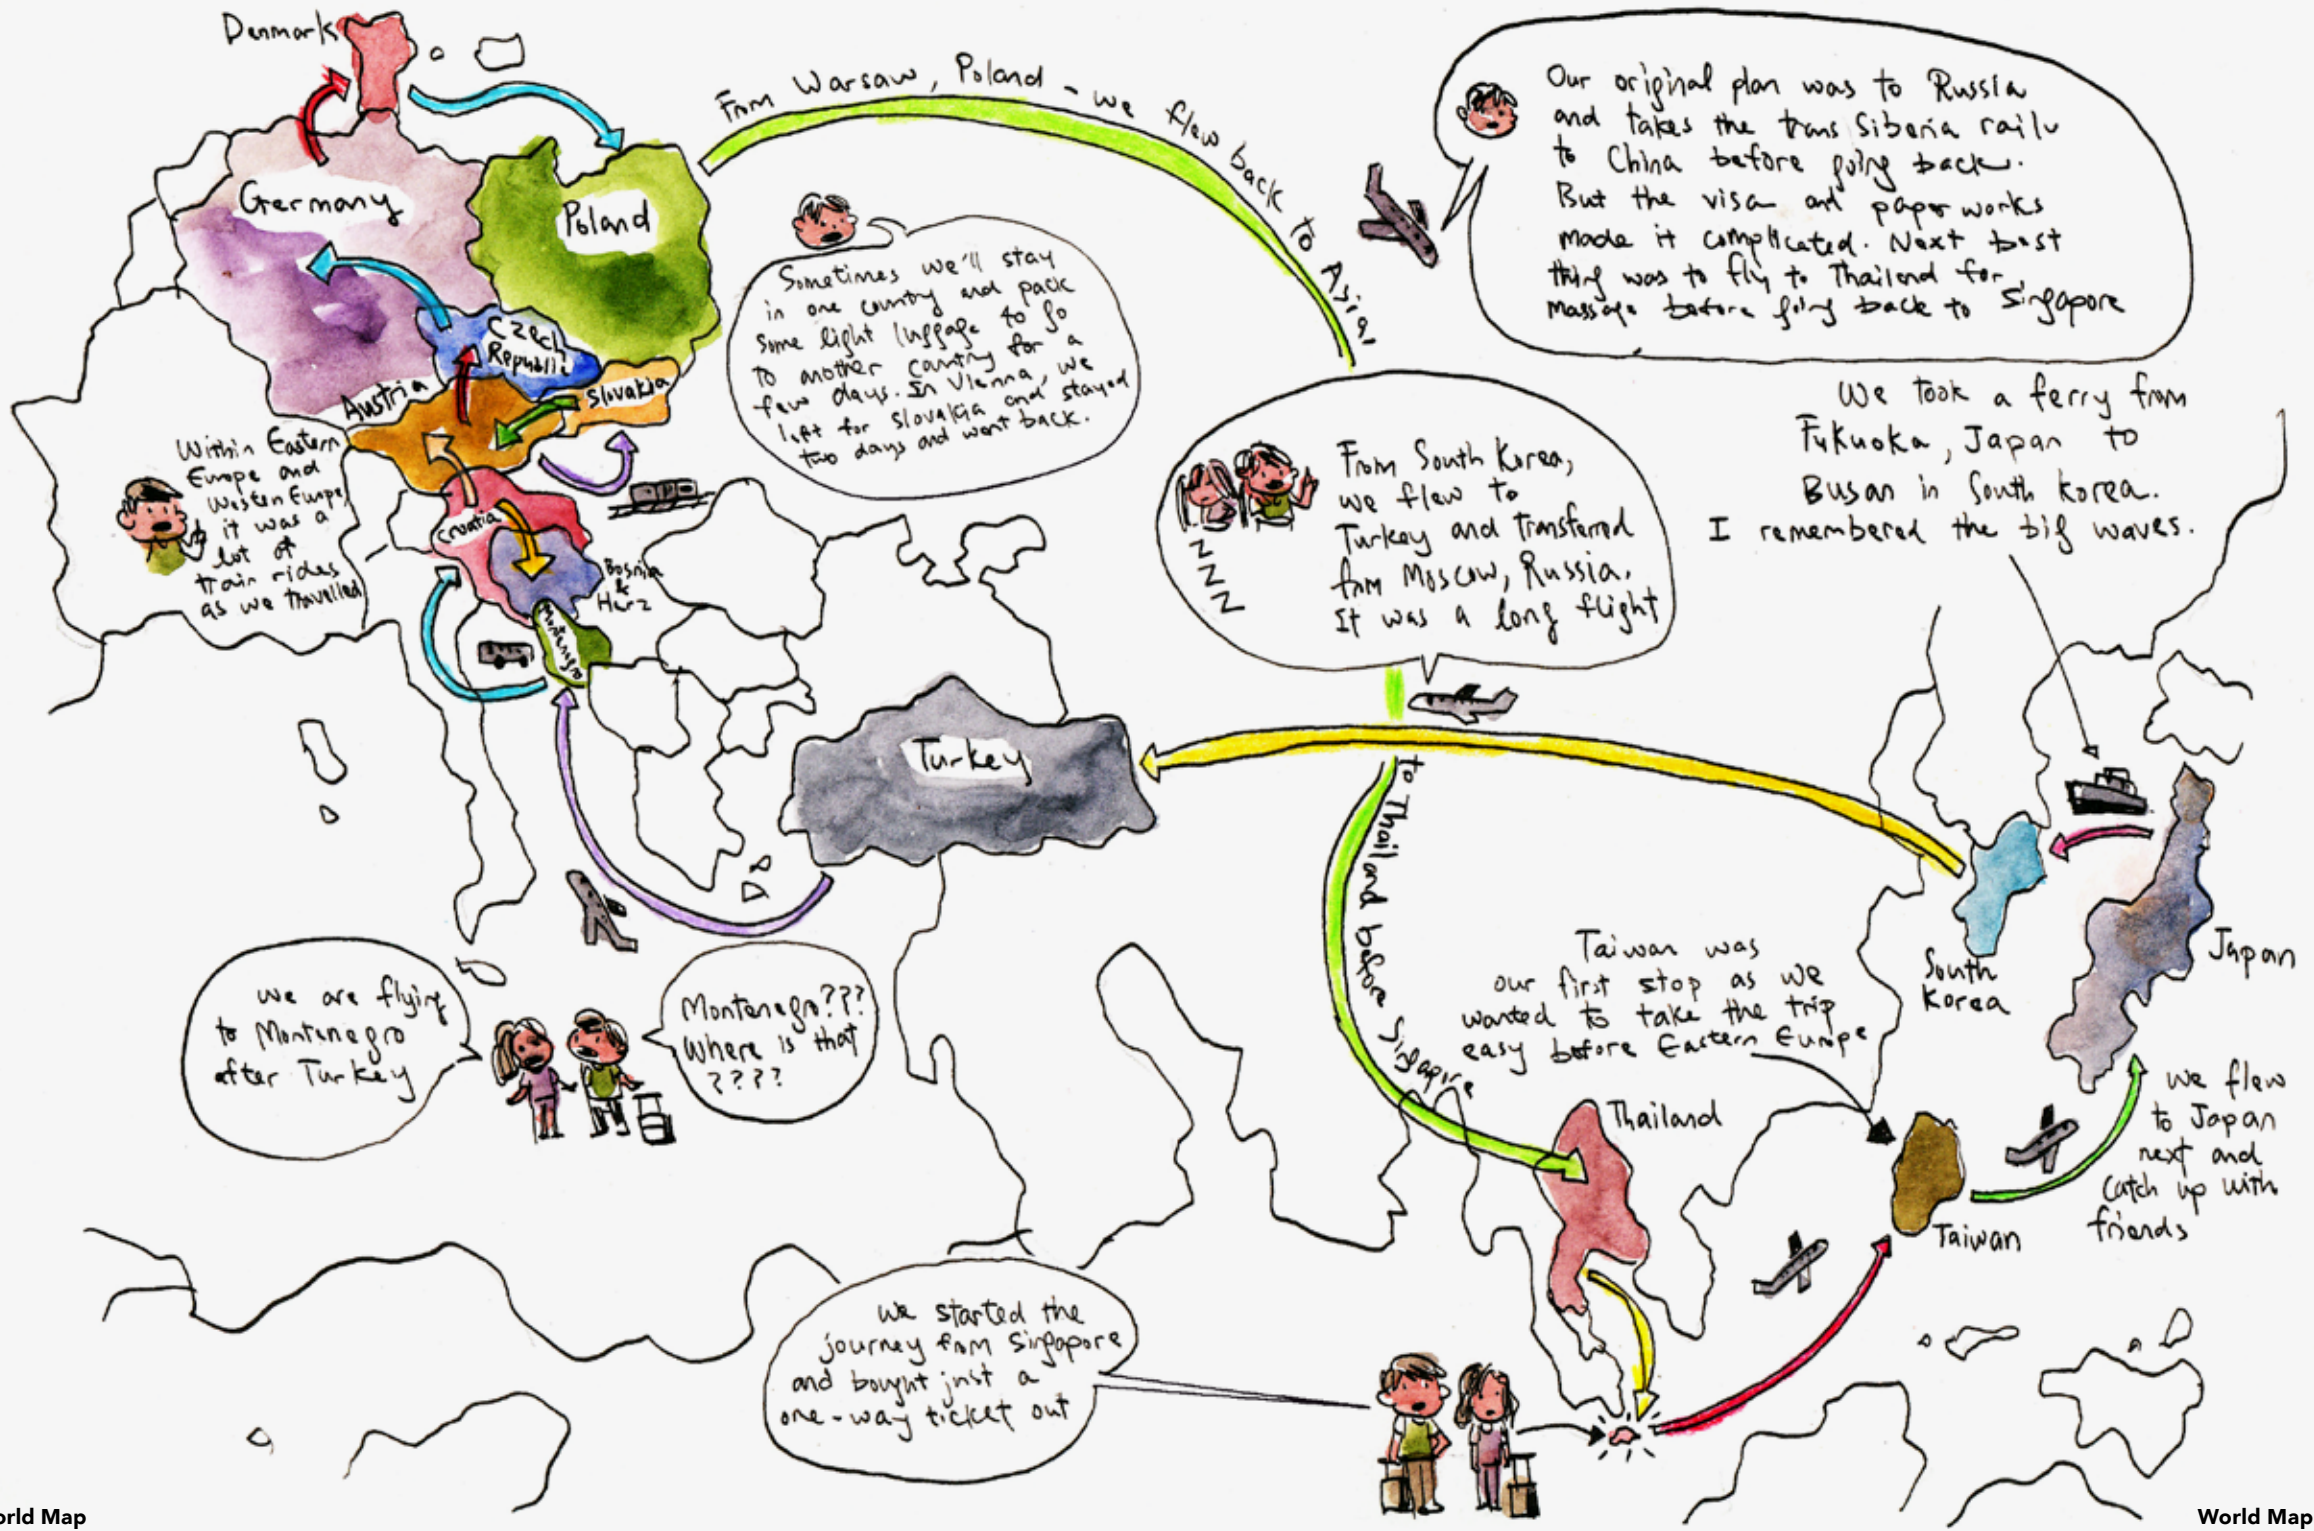 Denmark
Germany
Poland
Czech
Republic
Austria
Slovakia
Croatia
Bosnia
&
Herz
Montenegro
Turkey
From Warsaw, Poland - we flew back to Asia!
Our original plan was to Russia
and takes the trans Siberia railw
to China before going back.
But the visa and paper works
made it complicated. Next best
thing was to fly to Thailand for
massage before going back to Singapore
Sometimes we'll stay
in one country and pack
some light luggage to go
to another country for a
few days. In Vienna, we
left for Slovakia and stayed
two days and went back.
Within Eastern
Europe and
Western Europe,
it was a
lot of
train rides
as we travelled
From South Korea,
we flew to
Turkey and transferred
from Moscow, Russia.
It was a long flight
ZZZZ
We took a ferry from
Fukuoka, Japan to
Busan in South Korea.
I remembered the big waves.
to Thailand before Singapore
South
Korea
Japan
Taiwan was
our first stop as we
wanted to take the trip
easy before Eastern Europe
we are flying
to Montenegro
after Turkey
Montenegro???
Where is that
????
Thailand
Taiwan
we flew
to Japan
next and
Catch up with
friends
We started the
journey from Singapore
and bought just a
one-way ticket out
orld Map
World Map